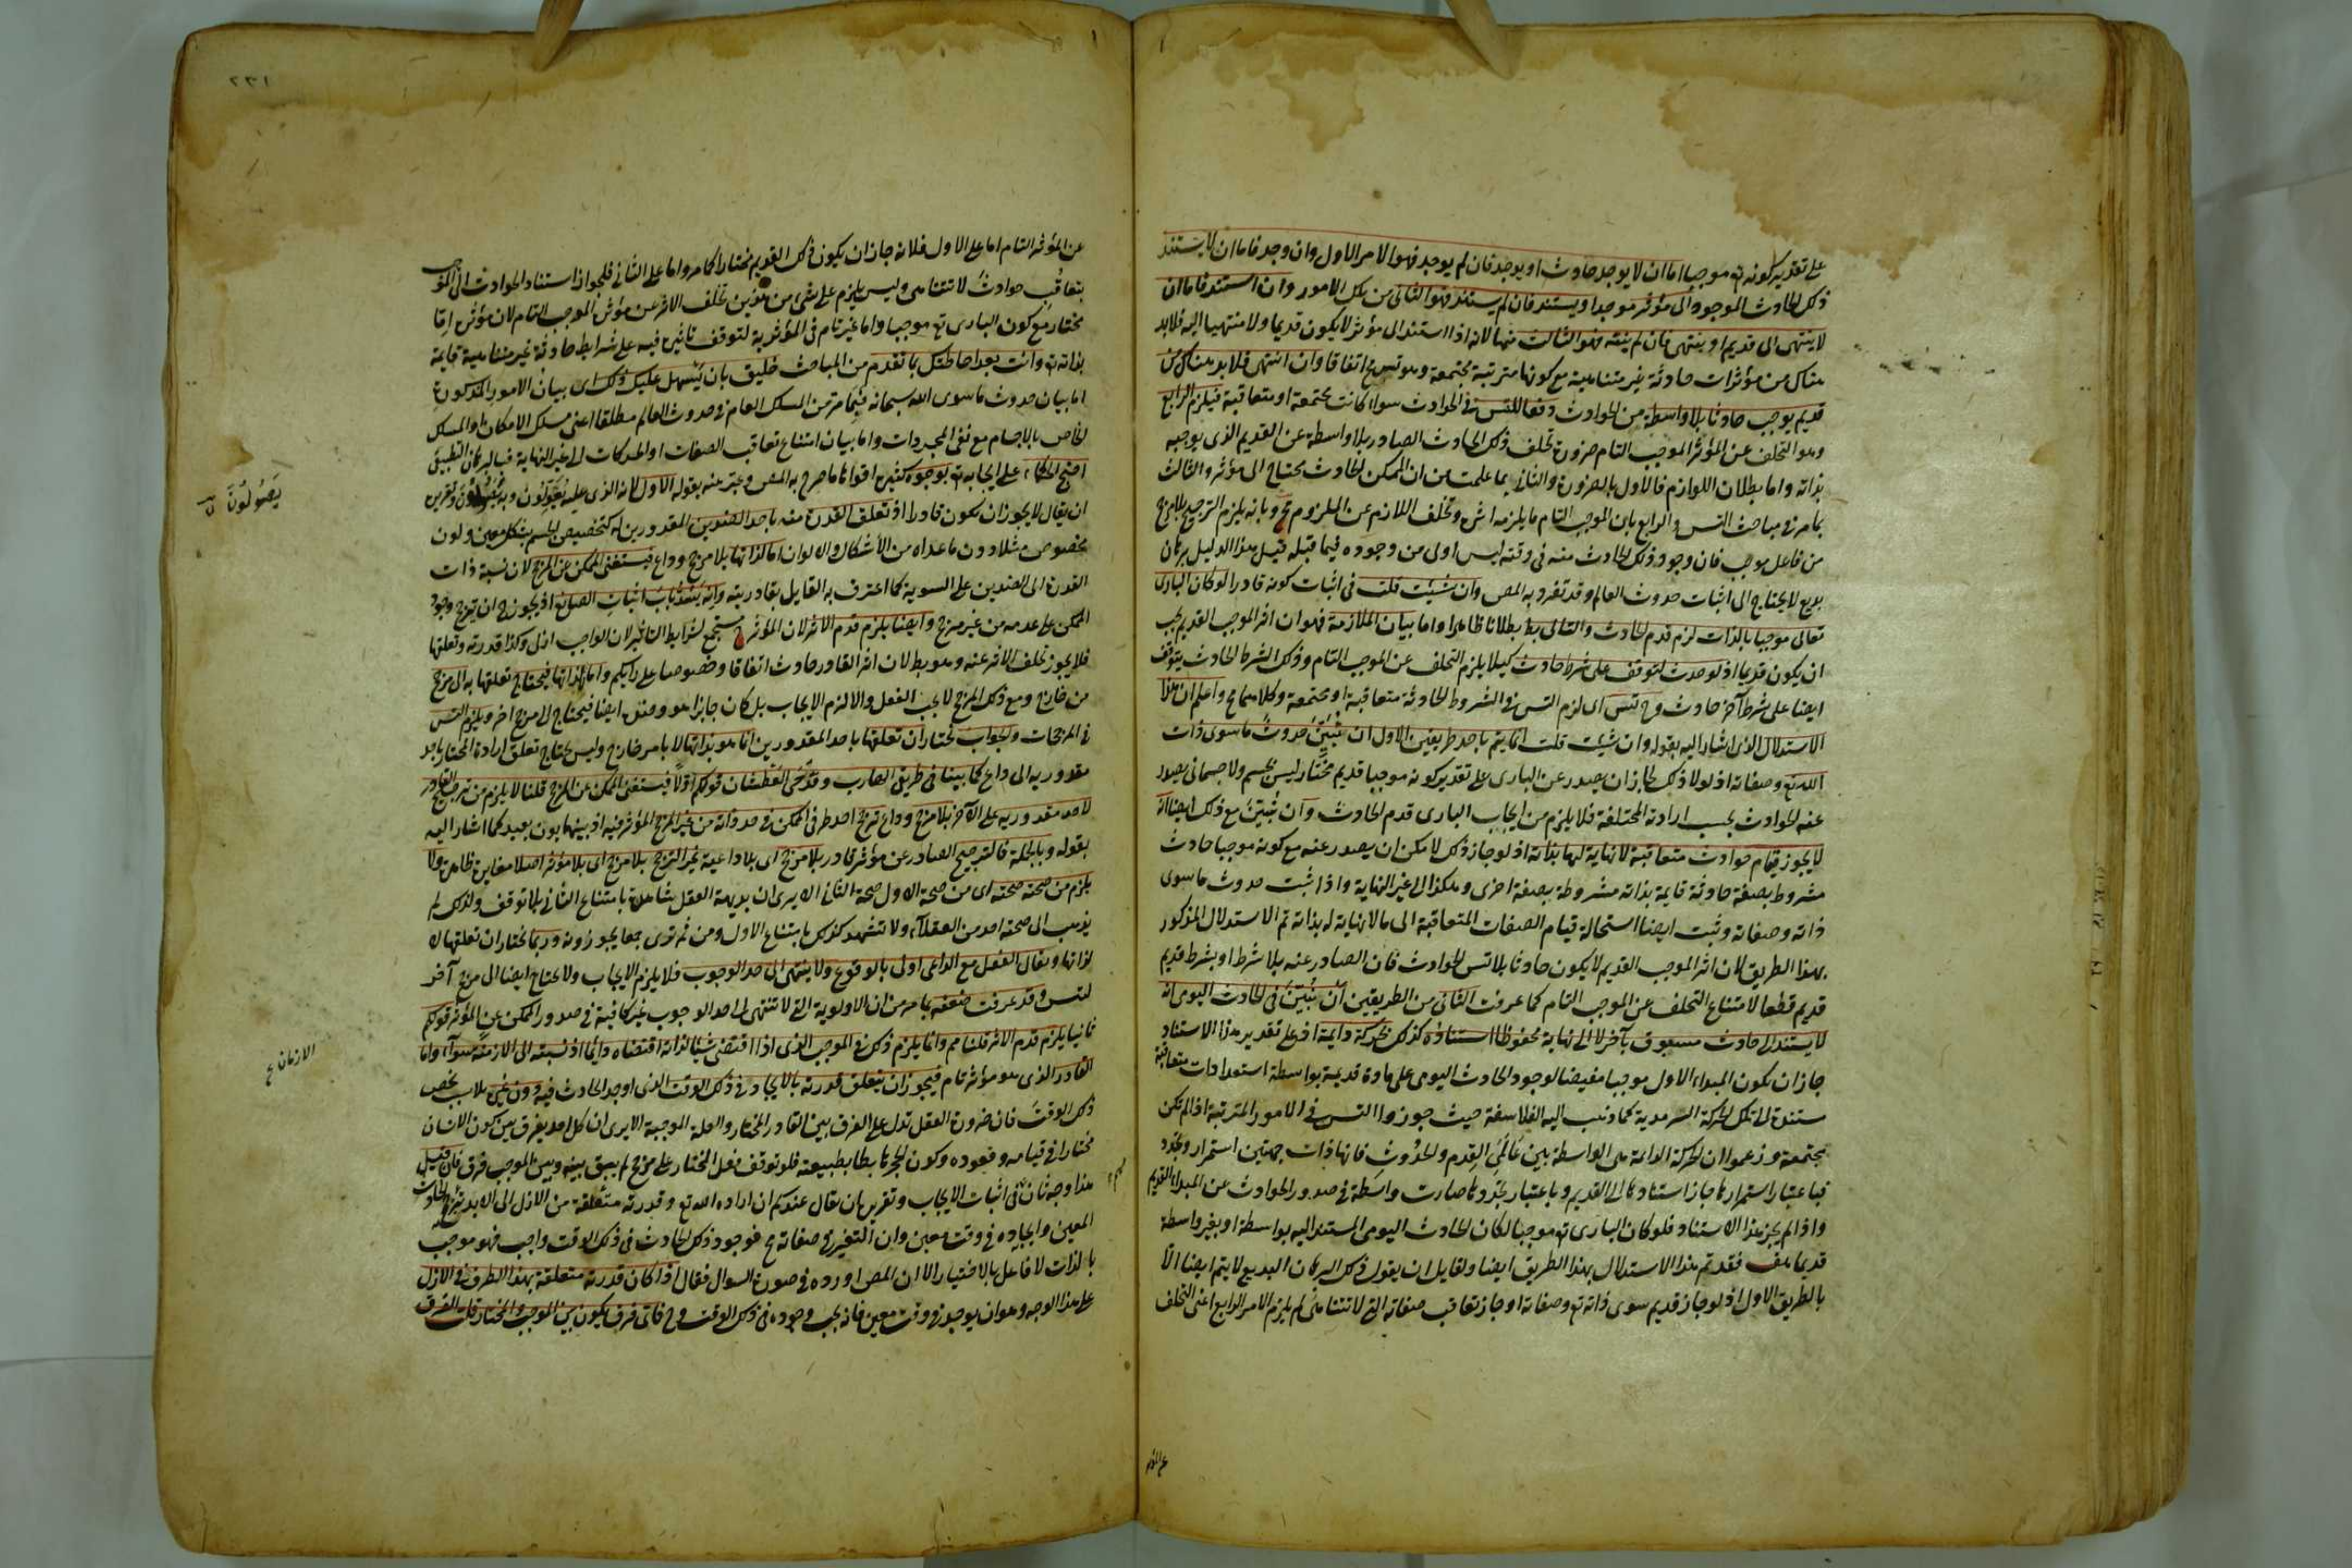 على تقدير كونه تع موجبا اما ان لا يوجد حادث او يوجد فان لم يوجد فهو الامر الاول وان وجد فاما ان لا يستند
ذلك الحادث الموجود الى مؤثر موجد او يستند فان لم يستند فهو الثاني من تلك الامور وان استند فاما ان
لا ينتهى الى قديم او ينتهى فان لم ينته فهو الثالث منها لانه اذا استند الى مؤثر لا يكون قديما ولا منتهيا اليه فلا بد
هناك من مؤثرات حادثة غير متناهية مع كونها مترتبة مجتمعة وهو تس مح اتفاقا وان انتهى فلا بد هناك من
قديم يوجب حادثا بلا واسطة من الحوادث دفعا للتس في الحوادث سواء كانت مجتمعة او متعاقبة فيلزم الرابع
وهو التخلف عن المؤثر الموجب التام ضرورة تخلف ذلك الحادث الصادر بلا واسطة عن القديم الذى يوجبه
بذاته واما بطلان اللوازم فالاول بالضرورة والثاني بما علمت من ان الممكن الحادث يحتاج الى مؤثر والثالث
بما مر في مباحث التس والرابع بان الموجب التام ما يلزمه اثره وتخلف اللازم عن الملزوم مح وبانه يلزم الترجيح بلا مرجح
من فاعل موجب فان وجود ذلك الحادث منه في وقته ليس اولى من وجوده فيما قبله قيل هذا الدليل برهان
بديع لا يحتاج الى اثبات حدوث العالم وقد تفرد به المص وان شئت قلت في اثبات كونه قادرا لو كان البارى
تعالى موجبا بالذات لزم قدم الحادث والتالى بط بطلانا ظاهرا واما بيان الملازمة فهو ان اثر الموجب القديم يجب
ان يكون قديما اذ لو حدث لتوقف على شرط حادث كيلا يلزم التخلف عن الموجب التام وذلك الشرط الحادث يتوقف
ايضا على شرط آخر حادث وح تس اى لزم التس في الشروط الحادثة متعاقبة او مجتمعة وكلاهما مح واعلم ان هذا
الاستدلال الذى اشار اليه بقوله وان شئت قلت انما يتم باحد طريقين الاول ان نبين حدوث ما سوى ذات
الله تع وصفاته اذ لولا ذلك لجاز ان يصدر عن البارى على تقدير كونه موجبا قديم مختار ليس بجسم ولا جسمانى يصدر
عنه الحوادث بحسب ارادته المختلفة فلا يلزم من ايجاب البارى قدم الحادث وان نبين مع ذلك ايضا انه
لا يجوز قيام حوادث متعاقبة لا نهاية لها بذاته اذ لو جاز ذلك لامكن ان يصدر عنه مع كونه موجبا حادث
مشروط بصفة حادثة قايمة بذاته مشروطة بصفة اخرى وهكذا الى غير النهاية واذا ثبت حدوث ما سوى
ذاته وصفاته وثبت ايضا استحالة قيام الصفات المتعاقبة الى ما لا نهاية له بذاته تم الاستدلال المذكور
بهذا الطريق لان اثر الموجب القديم لا يكون حادثا بلا تس الحوادث فان الصادر عنه بلا شرط او بشرط قديم
قديم قطعا لامتناع التخلف عن الموجب التام كما عرفت الثاني من الطريقين ان نبين في الحادث اليومى انه
لا يستند الى حادث مسبوق بآخر لا الى نهاية محفوظا استناده كذلك بحركة دايمة اذ على تقدير هذا الاستناد
جاز ان يكون المبدا الاول موجبا مفيضا لوجود الحادث اليومى على مادة قديمة بواسطة استعدادات متعاقبة
مستندة الى تلك الحركة السرمدية كما ذهب اليه الفلاسفة حيث جوزوا التس في الامور المترتبة اذا لم تكن
مجتمعة وزعموا ان الحركة الدائمة هى الواسطة بين عالمى القدم والحدوث فانها ذات جهتين استمرار وتجدد
فباعتبار استمرارها جاز استنادها الى القديم وباعتبار تجددها صارت واسطة في صدور الحوادث عن المبدا القديم
واذا لم يجز هذا الاستناد فلو كان البارى تع موجبا لكان الحادث اليومى المستند اليه بواسطة او بغير واسطة
قديما هف فقد تم هذا الاستدلال بهذا الطريق ايضا ولقايل ان يقول ذلك البرهان البديع لا يتم ايضا الا
بالطريق الاول اذ لو جاز قديم سوى ذاته تع وصفاته او جاز تعاقب صفاته التى لا تتناهى لم يلزم الامر الرابع اعنى التخلف
عن المؤثر
٢٣١
عن المؤثر التام اما على الاول فلانه جاز ان يكون ذلك القديم مختارا كما مر واما على الثاني فلجواز استناد الحوادث الى الموجب
بتعاقب حوادث لا تتناهى وليس يلزم على شئ من هذين تخلف الاثر عن مؤثره الموجب التام لان مؤثره اما
مختار مع كون البارى تع موجبا واما غير تام في المؤثرية لتوقف تاثيره فيه على شرايط حادثة غير متناهية قايمة
بذاته تع وانت بعد احاطتك بما تقدم من المباحث خليق بان يسهل عليك ذلك اى بيان الامور المذكورة
اما بيان حدوث ما سوى الله سبحانه فبما مر من المسلك العام في حدوث العالم مطلقا اعنى مسلك الامكان او المسلك
الخاص بالاجسام مع نفى المجردات واما بيان امتناع تعاقب الصفات او الحركات الى غير النهاية فبالبرهان التطبيقى
احتج الحكماء على ايجابه تع بوجوه كثيرة اقواها ما صرح به المص وعبر عنه بقوله الاول لانه الذى عليه يعولون وبه يصولون وتقريره
ان يقال لا يجوز ان يكون قادرا اذ تعلق القدرة منه باحد الضدين المقدورين له كتخصيص الجسم بشكل معين ولون
مخصوص مثلا دون ما عداه من الأشكال والالوان اما لذاتها بلا مرجح وداع فيستغنى الممكن عن المرجح لان نسبة ذات
القدرة الى الضدين على السوية كما اعترف به القايل بقادريته وانه يسد باب اثبات الصانع اذ يجوز ح ان يترجح وجود
الممكن على عدمه من غير مرجح وايضا يلزم قدم الاثر لان المؤثر ح مستجمع لشرايط التاثير لان الواجب ازلى وكذا قدرته وتعلقها
فلا يجوز تخلف الاثر عنه وهو بط لان اثر القادر حادث اتفاقا وخصوصا على رايكم واما لا لذاتها فيحتاج تعلقها به الى مرجح
من خارج ومع ذلك المرجح لا يجب الفعل والا لزم الايجاب بل كان جايزا هو وضده ايضا فيحتاج الى مرجح اخر ويلزم التس
في المرجحات والجواب نختار ان تعلقها باحد المقدورين انما هو بذاتها لا بامر خارج وليس يحتاج تعلق ارادة المختار باحد
مقدوريه الى داع كما بينا في طريق الهارب وقدحى العطشان قولكم اولا فيستغنى الممكن عن المرجح قلنا لا يلزم من ترجيح القادر
لاحد مقدوريه على الآخر بلا مرجح وداع ترجح احد طرفى الممكن في حد ذاته من غير المرجح المؤثر فيه اذ بينهما بون بعيد كما اشار اليه
بقوله وبالجملة فالترجيح الصادر عن مؤثر قادر بلا مرجح اى بلا داعية غير الترجح بلا مرجح اى بلا مؤثر اصلا مغايرة ظاهرة ولا
يلزم من صحته صحته اى من صحة الاول صحة الثاني الا يرى ان بديهة العقل شاهدة بامتناع الثاني بلا توقف ولذلك لم
يذهب الى صحته احد من العقلاء ولا تشهد كذلك بامتناع الاول ومن ثم ترى جمعا يجوزونه وربما يختار ان تعلقها لا
لذاتها ويقال الفعل مع الداعى اولى بالوقوع ولا ينتهى الى حد الوجوب فلا يلزم الايجاب ولا يحتاج ايضا الى مرجح آخر
ليتس وقد عرفت ضعفه بما مر من ان الاولوية التى لا تنتهى الى حد الوجوب غير كافية في صدور الممكن عن المؤثر قولكم
ثانيا يلزم قدم الاثر قلنا مم وانما يلزم ذلك في الموجب الذى اذا اقتضى شيئا لذاته اقتضاه دائما اذ نسبته الى الازمنة سواء واما
القادر الذى هو مؤثر تام فيجوز ان يتعلق قدرته بالايجاد في ذلك الوقت الذى اوجد الحادث فيه دون غيره بلا سبب يخص
ذلك الوقت فان ضرورة العقل تدل على الفرق بين القادر المختار والعلة الموجبة الا يرى ان كل احد يفرق بين كون الانسان
مختارا في قيامه وقعوده وكون الحجر هابطا بطبيعته فلو توقف فعل المختار على مرجح لم يبق بينه وبين الموجب فرق فان قيل
هذا وجه ثان في اثبات الايجاب وتقريره ان يقال عندكم ان ارادة الله تع وقدرته متعلقة من الازل الى الابد بترجيح الحادث
المعين وايجاده في وقت معين وان التغير في صفاته مح فوجود ذلك الحادث في ذلك الوقت واجب فهو موجب
بالذات لا فاعل بالاختيار الا ان المص اورده في صورة السوال فقال اذا كان قدرته متعلقة بهذا الطرف في الازل
على هذا الوجه وهو ان يوجد في وقت معين فانه يجب وجوده في ذلك الوقت وح فاى فرق يكون بين الموجب والمختار قلت الفرق
يصولون
الازمان